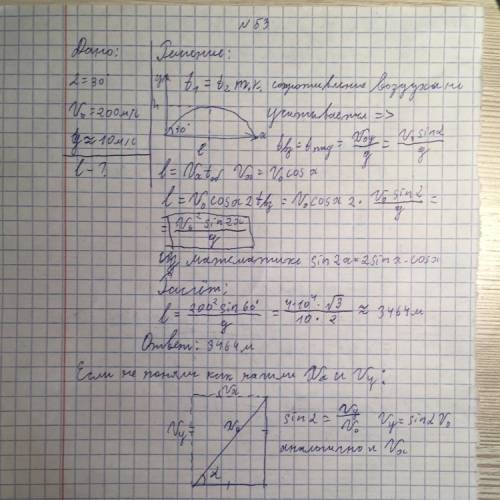 N 53
Дано:
α = 30°
V₀ = 200 м/с
g ≈ 10 м/с
l - ?
Решение:
t₁ = t₂ т.к. сопротивление воздуха не
учитывается =>
y
h
30°
l
x
t вз = t пад = V₀y/g = V₀ sin α/g
l = Vx t об Vx = V₀ cos α
l = V₀ cos α 2 t вз = V₀ cos α 2 · V₀ sin α/g =
= V₀² sin 2α/g
Из математике sin 2α = 2 sin α · cos α
Расчёт:
l = 200² sin 60°/g = 4·10⁴·√3/10·2 ≈ 3464 м
Ответ: 3464 м
Если не поняли как нашли Vx и Vy:
Vx
Vy
V₀
α
sin α = Vy/V₀ Vy = sin α V₀
аналогично и Vx